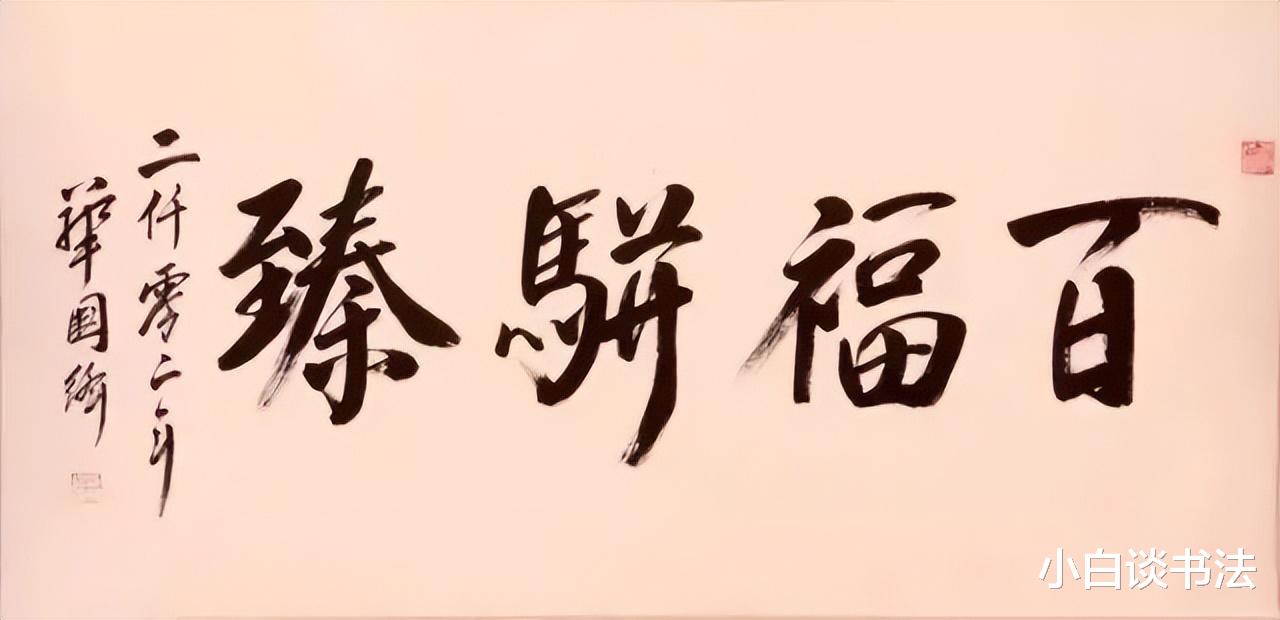 百福駢臻
二仟零二年
華国鋒
小白谈书法